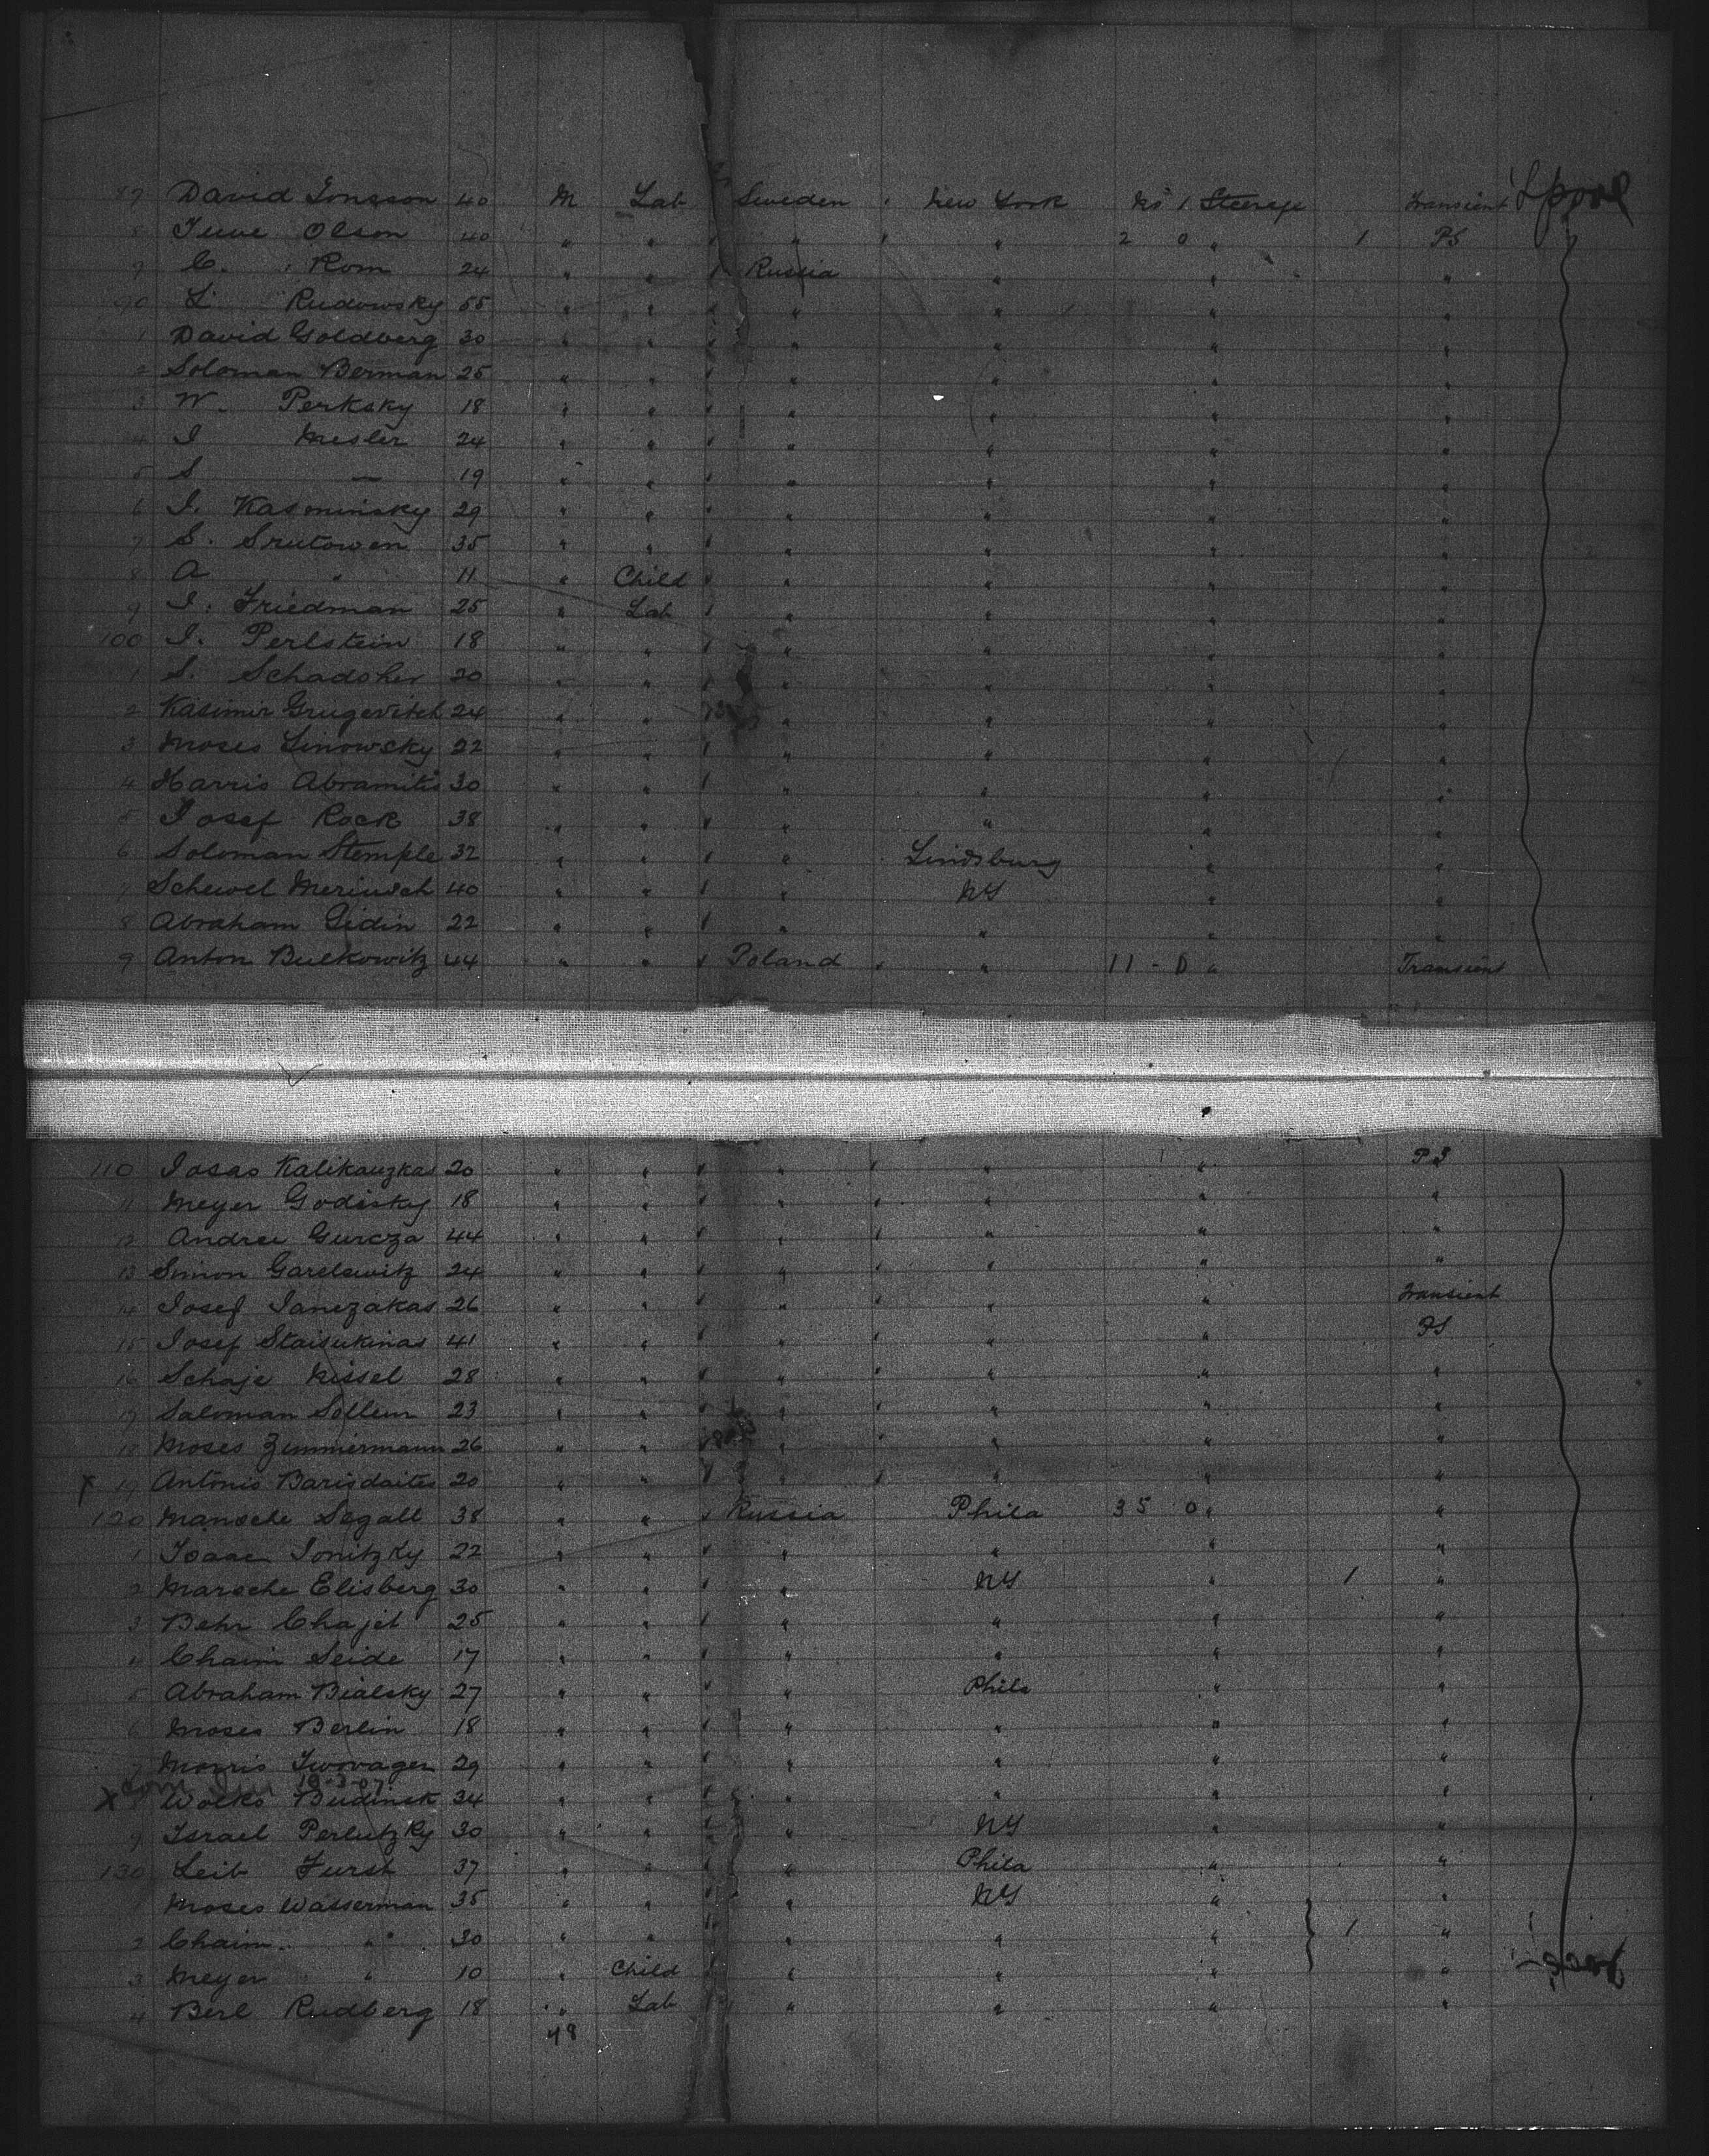 87 David Jonsson 40 M Lab Sweden New York No 1 Steerage Transient L'pool
8 Juve Olson 40 " " " " 2 0 " 1 PS
9 C. Rom 24 " " Russia " " "
90 L Rudowsky 55 " " " " " "
1 David Goldberg 30 " " " " " "
2 Soloman Berman 25 " " " " " "
3 W. Perksky 18 " " " " " "
94 I Mesler 24 " " " " " "
5 S — 19 " " " " " "
6 I. Kasminsky 29 " " " " " "
7 S. Srutowen 35 " " " " " "
8 A " 11 " Child " " " "
9 I. Friedman 25 " Lab " " " "
100 I. Perlstein 18 " " " " " "
1 S. Schadoher 20 " " " " " "
2 Kasimir Grugevitch 24 " " " " " "
3 Moses Linowsky 22 " " " " " "
4 Harris Abramitis 30 " " " " " "
5 Josef Rock 38 " " " " " "
6 Soloman Stemple 32 " " " Lindsburg " "
7 Schewel Meriusch 40 " " " NY " "
8 Abraham Gidin 22 " " " " " "
9 Anton Bulkowitz 44 " " Poland " 11 - D " Transient
110 Josas Kalikauzkas 20 " " " " " PS
11 Meyer Godisky 18 " " " " " "
12 Andrei Gurcza 44 " " " " " "
13 Simon Garelewitz 24 " " " " " "
14 Josef Janezakas 26 " " " " " Transient
15 Josef Staisukinas 41 " " " " " PS
16 Schaje Nissel 28 " " " " " "
17 Saloman Sollem 23 " " " " " "
18 Moses Zimmermann 26 " " " " " "
X 19 Antonio Barisdaites 20 " " " " " "
120 Mansche Segall 38 " " Russia Phila 35 0 " "
1 Isaac Jonitzky 22 " " " " " "
2 Marsche Elisberg 30 " " " NY " 1 "
3 Behr Chajet 25 " " " " " "
4 Chaim Seide 17 " " " " " "
5 Abraham Bialsky 27 " " " Phila " "
6 Moses Berlin 18 " " " " " "
7 Morris Tworagen 29 " " " " " "
X 8 Wolko Budinsk 34 " " " " " "
9 Israel Perlutzky 30 " " " NY " "
130 Leib Furst 37 " " " Phila " "
1 Moses Wasserman 35 " " " NY " "
2 Chaim " 30 " " " " " 1 "
3 Meyer " 10 " Child " " " "
4 Berl Rudberg 18 " Lab " " " "
48